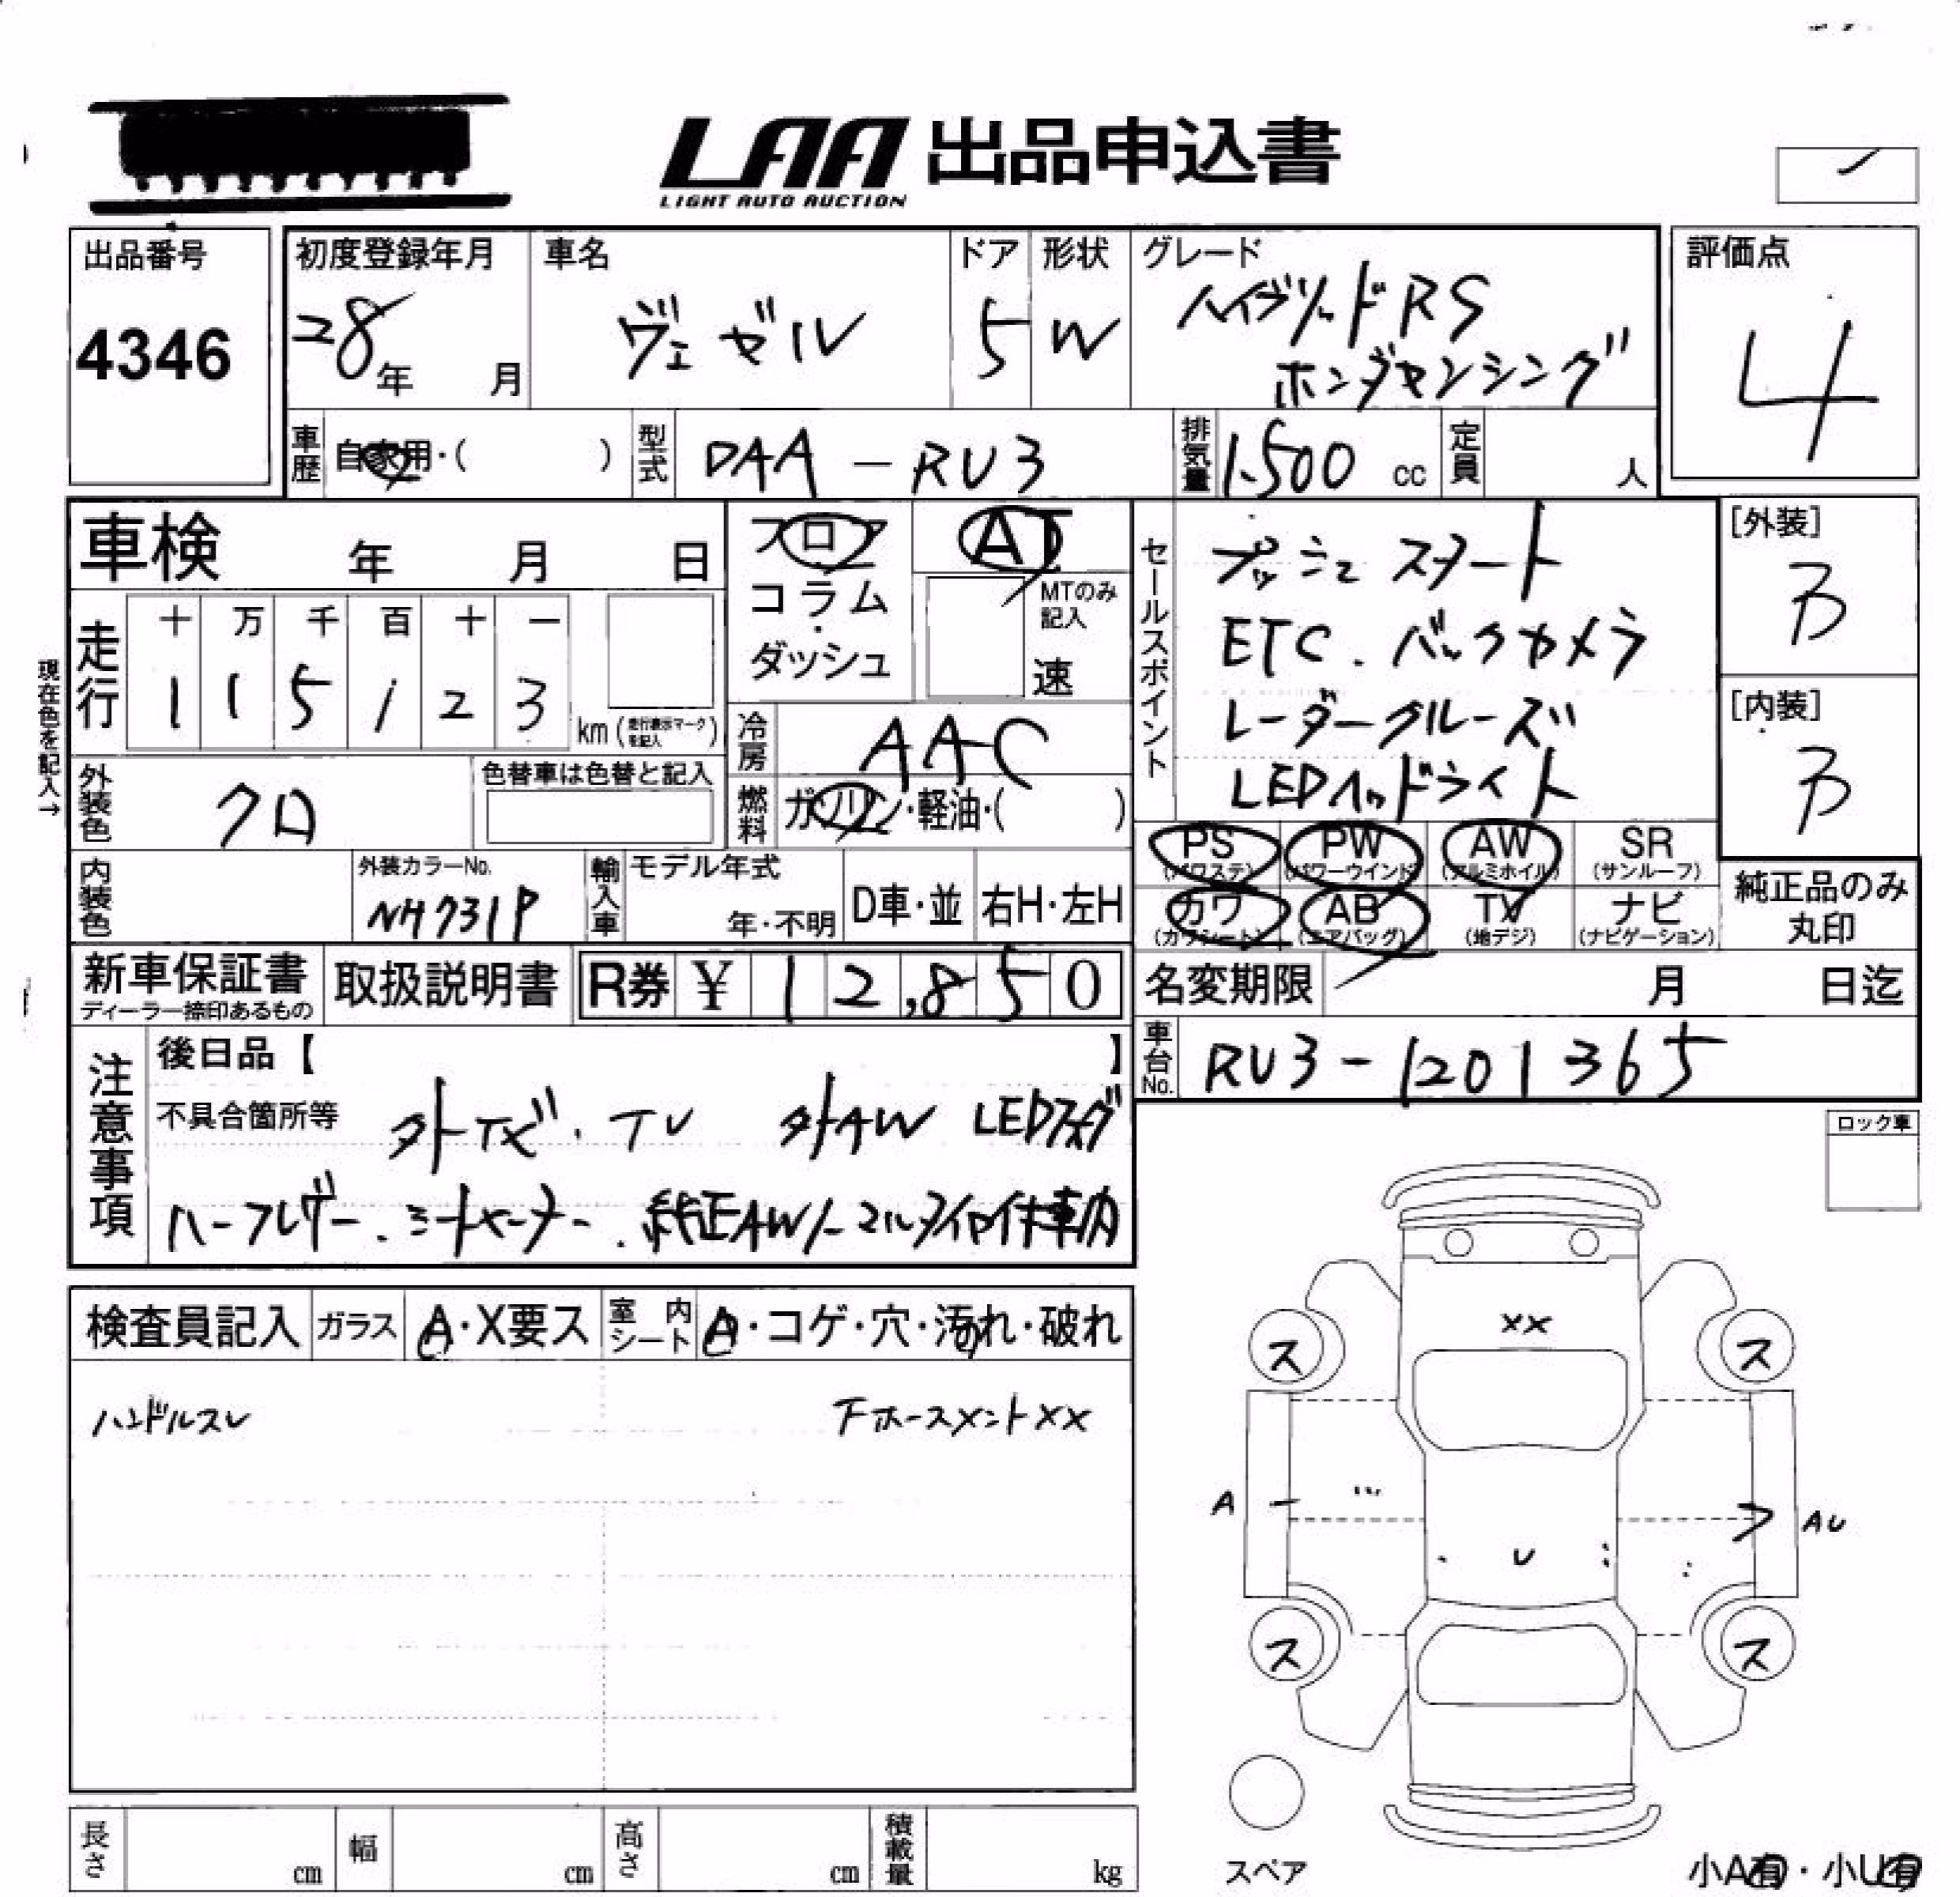 LAA 出品申込書
LIGHT AUTO AUCTION
出品番号
4346
初度登録年月
28年 月
車名
ヴェゼル
ドア
5
形状
W
グレード
ハイブリッドRS
ホンダセンシング
評価点
4
車歴
自家用・( )
型式
DAA-RU3
排気量
1.500 cc
定員
人
車検 年 月 日
フロア
コラム
・
ダッシュ
AT
MTのみ
記入
速
セールスポイント
プッシュスタート
ETC. バックカメラ
レーダークルーズ
LEDヘッドライト
[外装]
B
[内装]
B
現在色を記入→
走行
十 万 千 百 十 一
1 1 5 1 2 3
km (走行表示マークを記入)
冷房
AAC
外装色
クロ
色替車は色替と記入
燃料
ガソリン・軽油・( )
PS
(パワステ)
PW
(パワーウインド)
AW
(アルミホイル)
SR
(サンルーフ)
内装色
外装カラーNo.
NH731P
輸入車
モデル年式
年・不明
D車・並
右H・左H
カワ
(カワシート)
AB
(エアバッグ)
TV
(地デジ)
ナビ
(ナビゲーション)
純正品のみ
丸印
新車保証書
ディーラー捺印あるもの
取扱説明書
R券 ¥ 12,850
名変期限 月 日迄
車台No.
RU3-1201365
注意事項
後日品【 】
不具合箇所等
外ナビ・TV 外AW LED
ハーフレザー. シートヒーター. 純正AWノーマルタイヤ付車内
ロック車
検査員記入
ガラス
A・X要ス
室内シート
A・コゲ・穴・汚れ・破れ
ハンドルスレ
下ホースメントXX
XX
ス
ス
A
U
AU
ス
ス
スペア
長さ
cm
幅
cm
高さ
cm
積載量
kg
小A有・小U有